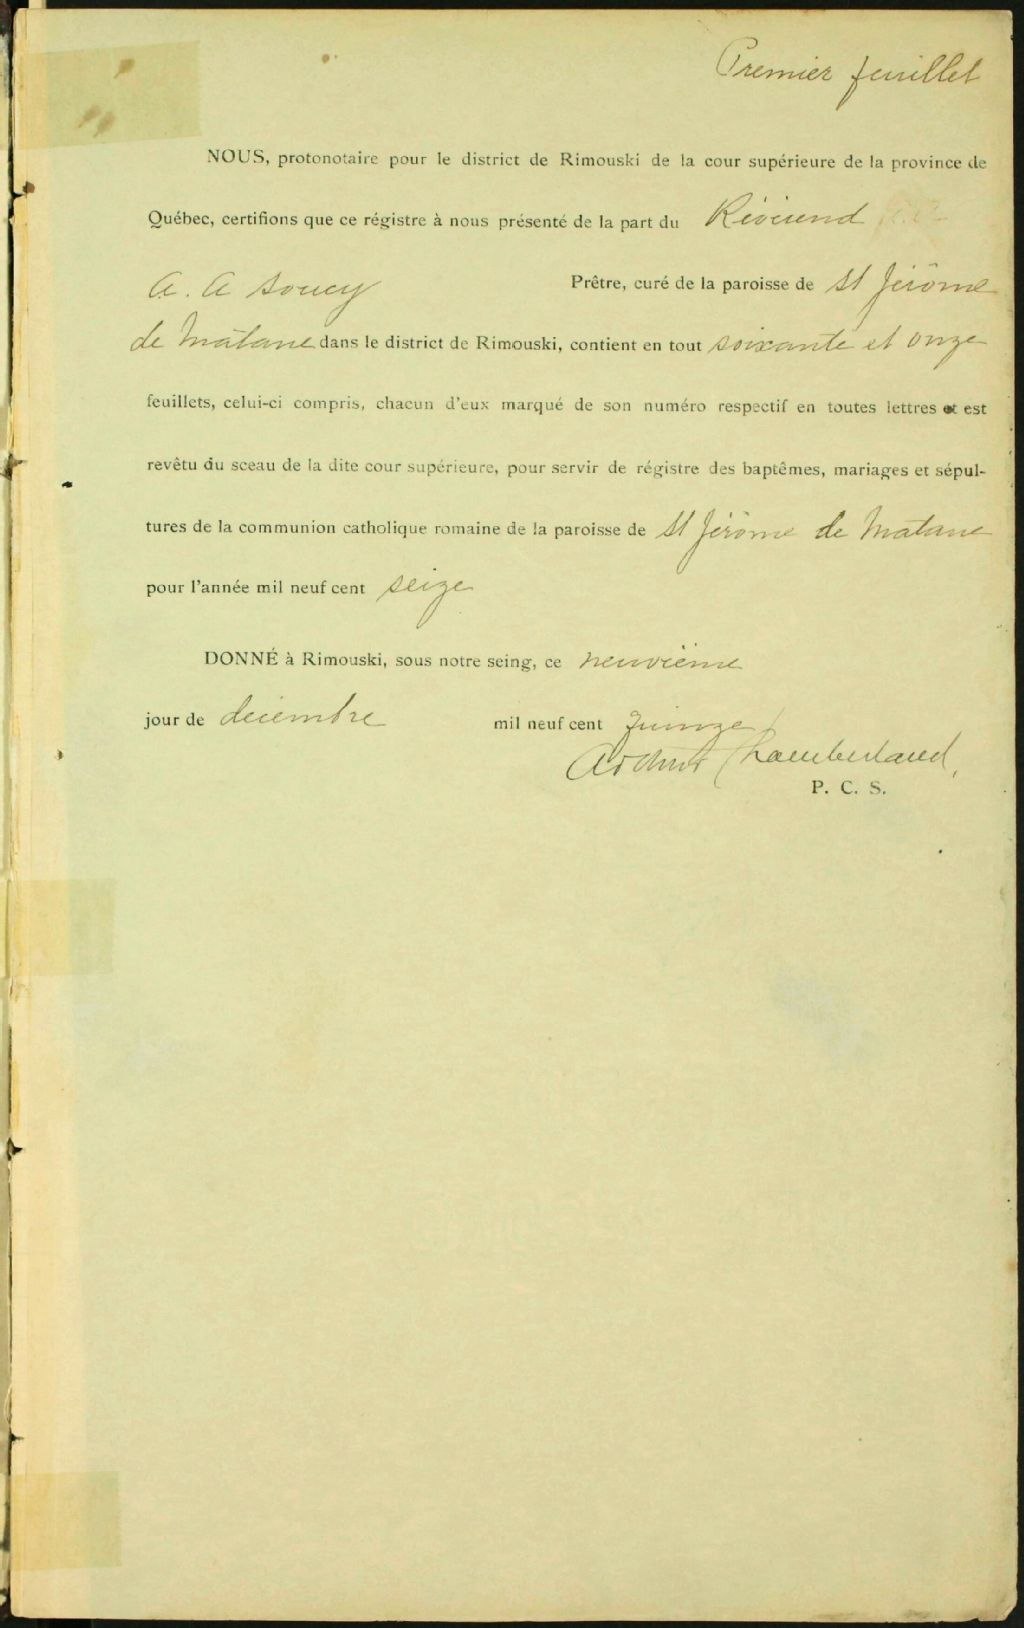 Premier feuillet
NOUS, protonotaire pour le district de Rimouski de la cour supérieure de la province de
Québec, certifions que ce régistre à nous présenté de la part du Révérend
A. A Soucy Prêtre, curé de la paroisse de St Jérôme
de Matane dans le district de Rimouski, contient en tout soixante et onze
feuillets, celui-ci compris, chacun d'eux marqué de son numéro respectif en toutes lettres et est
revêtu du sceau de la dite cour supérieure, pour servir de régistre des baptêmes, mariages et sépul-
tures de la communion catholique romaine de la paroisse de St Jérôme de Matane
pour l'année mil neuf cent seize
DONNÉ à Rimouski, sous notre seing, ce neuvième
jour de décembre mil neuf cent quinze
Arthur Chamberland,
P. C. S.